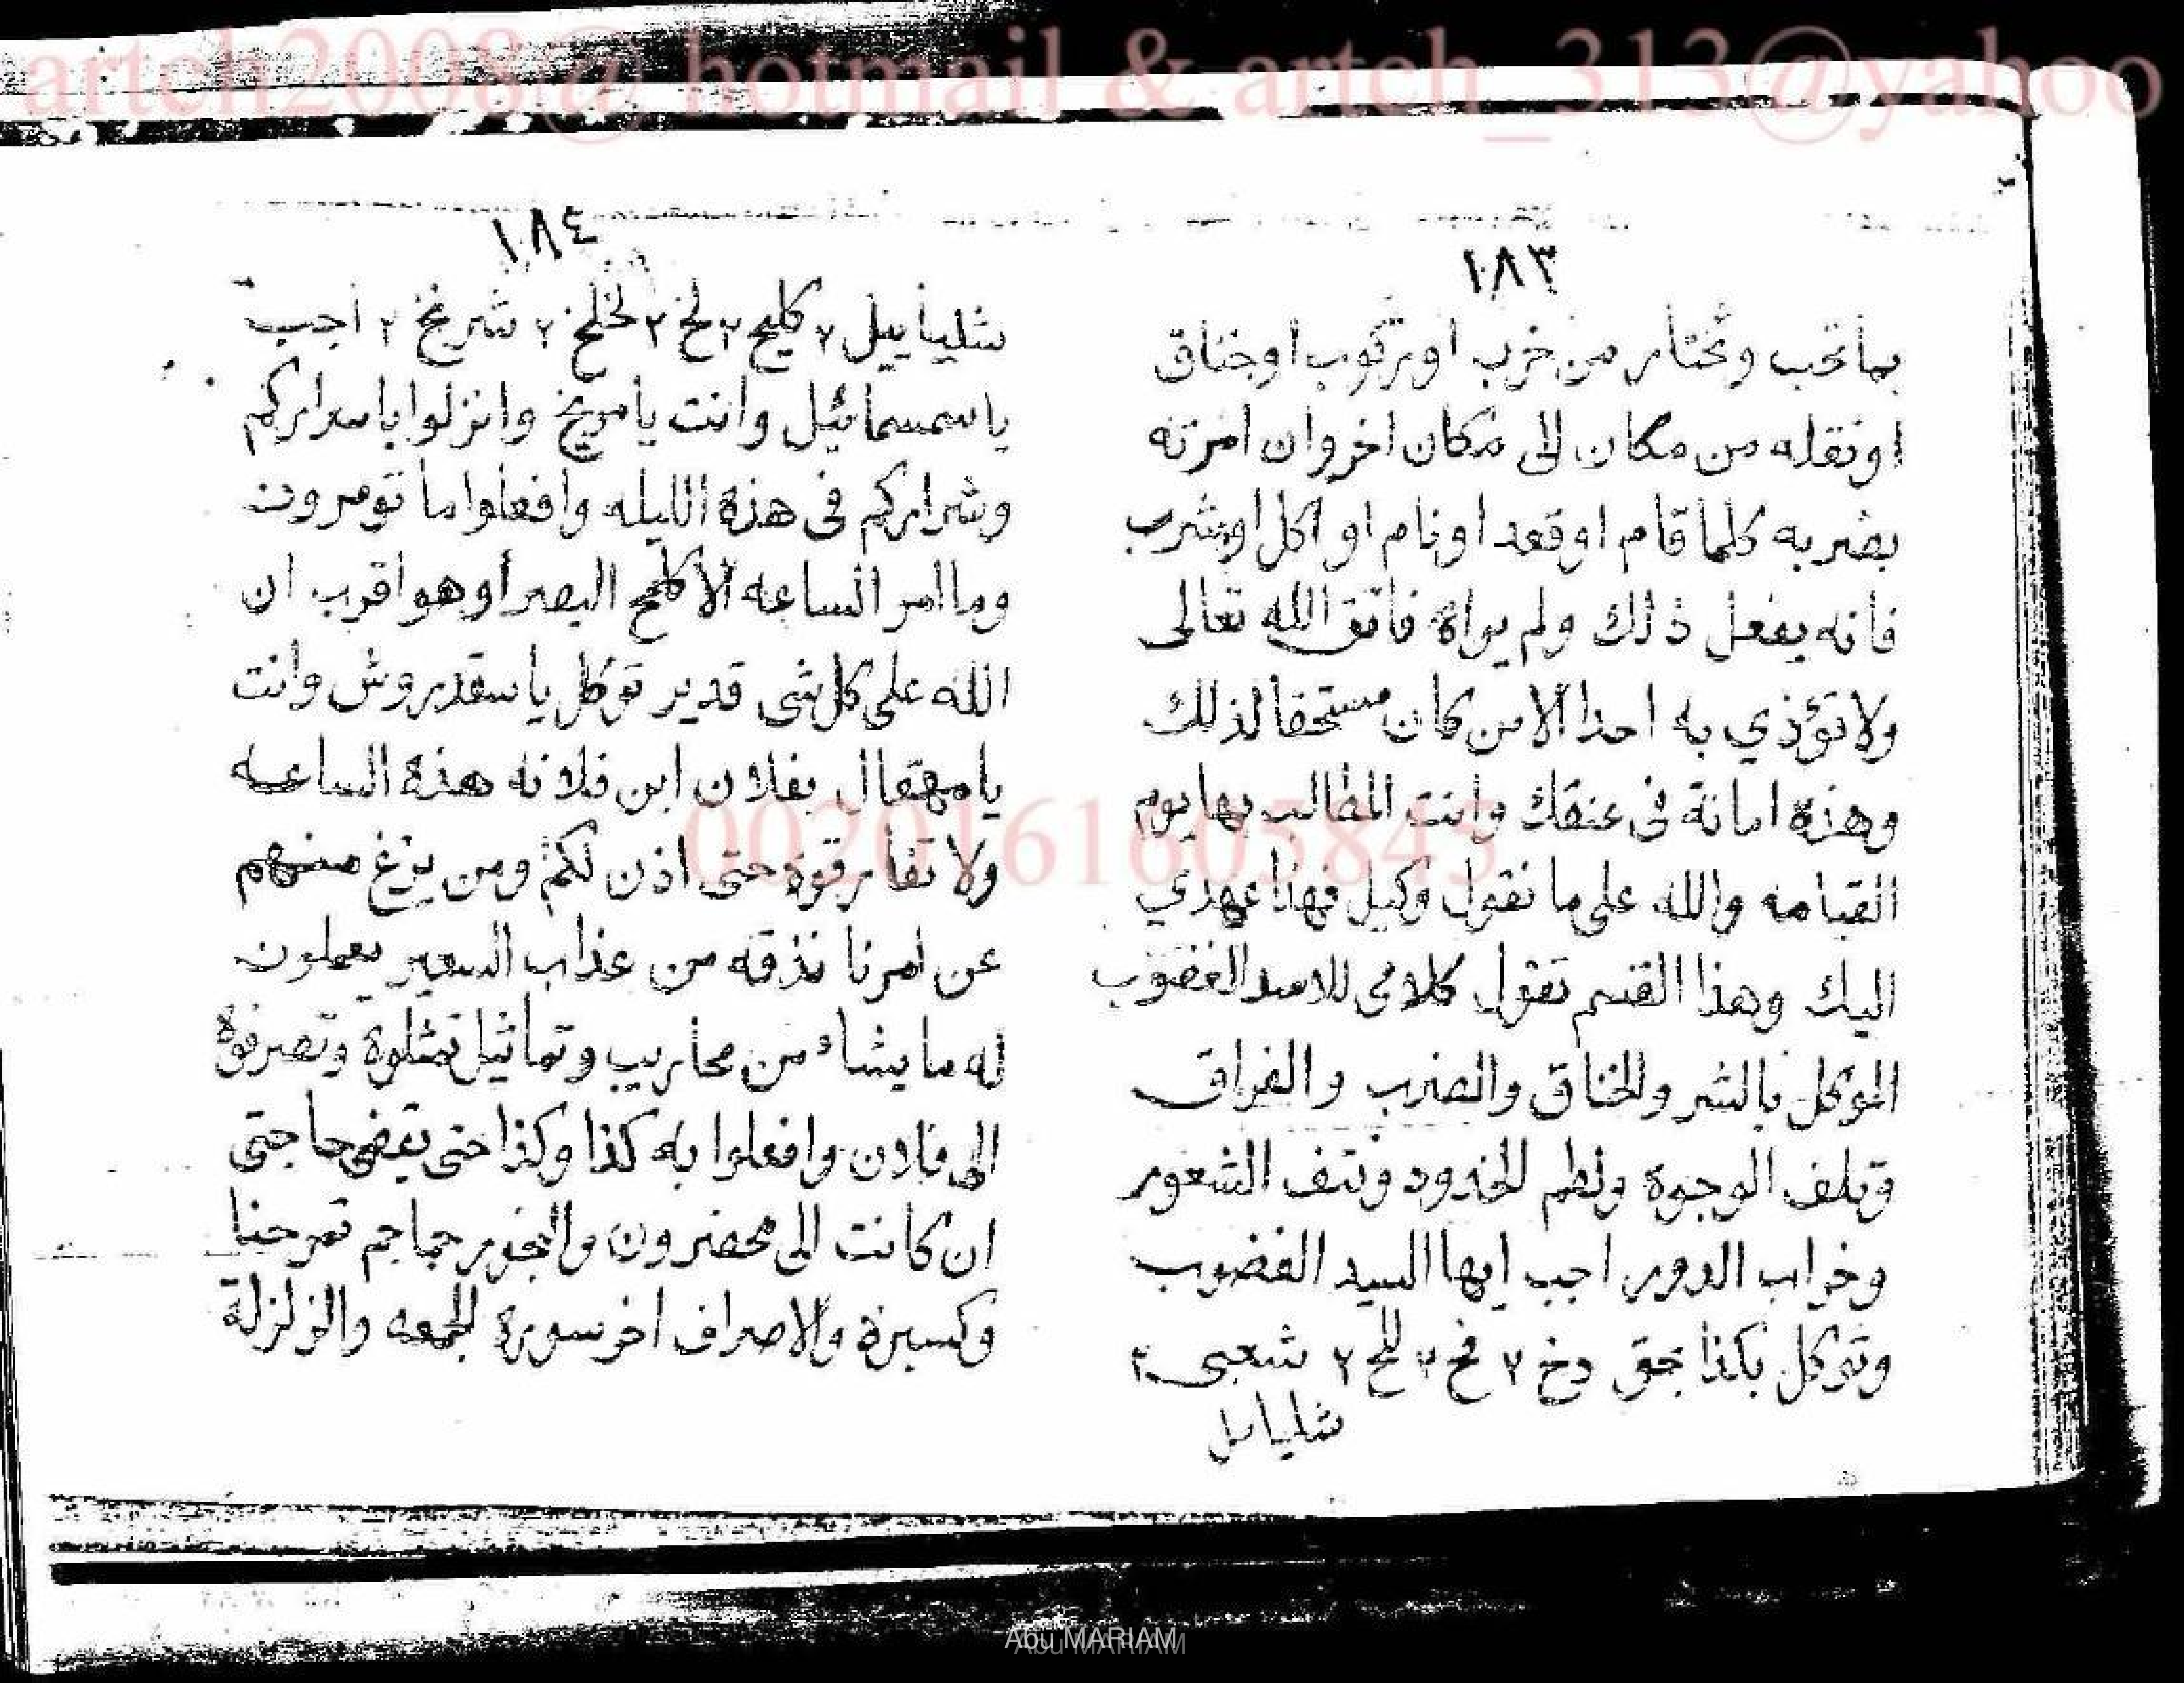 artch2008@ hotmail & artch_313@yahoo
١٨٣
بما تحب وتختار من ضرب او ركوب او خناق
او نقله من مكان الى مكان اخر وان امرته
بضربه كلما قام او قعد او نام او اكل او شرب
فانه يفعل ذلك ولم يراه فاتق الله تعالى
ولا تؤذي به احدا الا من كان مستحقا لذلك
وهذه امانة فى عنقك وانت المطالب بها يوم
القيامه والله على ما نقول وكيل فهذا عهدي
اليك وهذا القسم تقول كلامى للاسد الغضوب
الموكل بالشر والخناق والضرب والفراق
وتلف الوجوه ولطم الخدود ونتف الشعور
وخراب الدور اجب ايها السيد الغضوب
وتوكل بكذا بحق دخ ٢ فخ ٢ للخ ٢ شعبى ٢
شليابيل
١٨٤
شلياييل ٢ كليخ ٢ لخ ٢ لخلخ ٢ شمريخ ٢ اجب
ياسمسمائيل وانت يامريخ وانزلوا باسراركم
وشراركم فى هذه الليله وافعلوا ما تومرون
وما امر الساعه الا كلمح البصر أو هو اقرب ان
الله على كل شى قدير توكل ياسقدروش وانت
يامهقال بفلان ابن فلانه هذه الساعه
ولا تفارقوه حتى اذن لكم ومن يزغ منهم
عن امرنا نذقه من عذاب السعير يعملون
له ما يشاء من محاريب وتماثيل تمثلوه وتصرفوه
الى فلان وافعلوا به كذا وكذا حتى تقضى حاجتى
ان كانت الى محضرون والبخور جماجم تمرحنا
وكسبره والاصراف اخر سورة الجمعه والزلزلة
0020161605843
Abu MARIAM